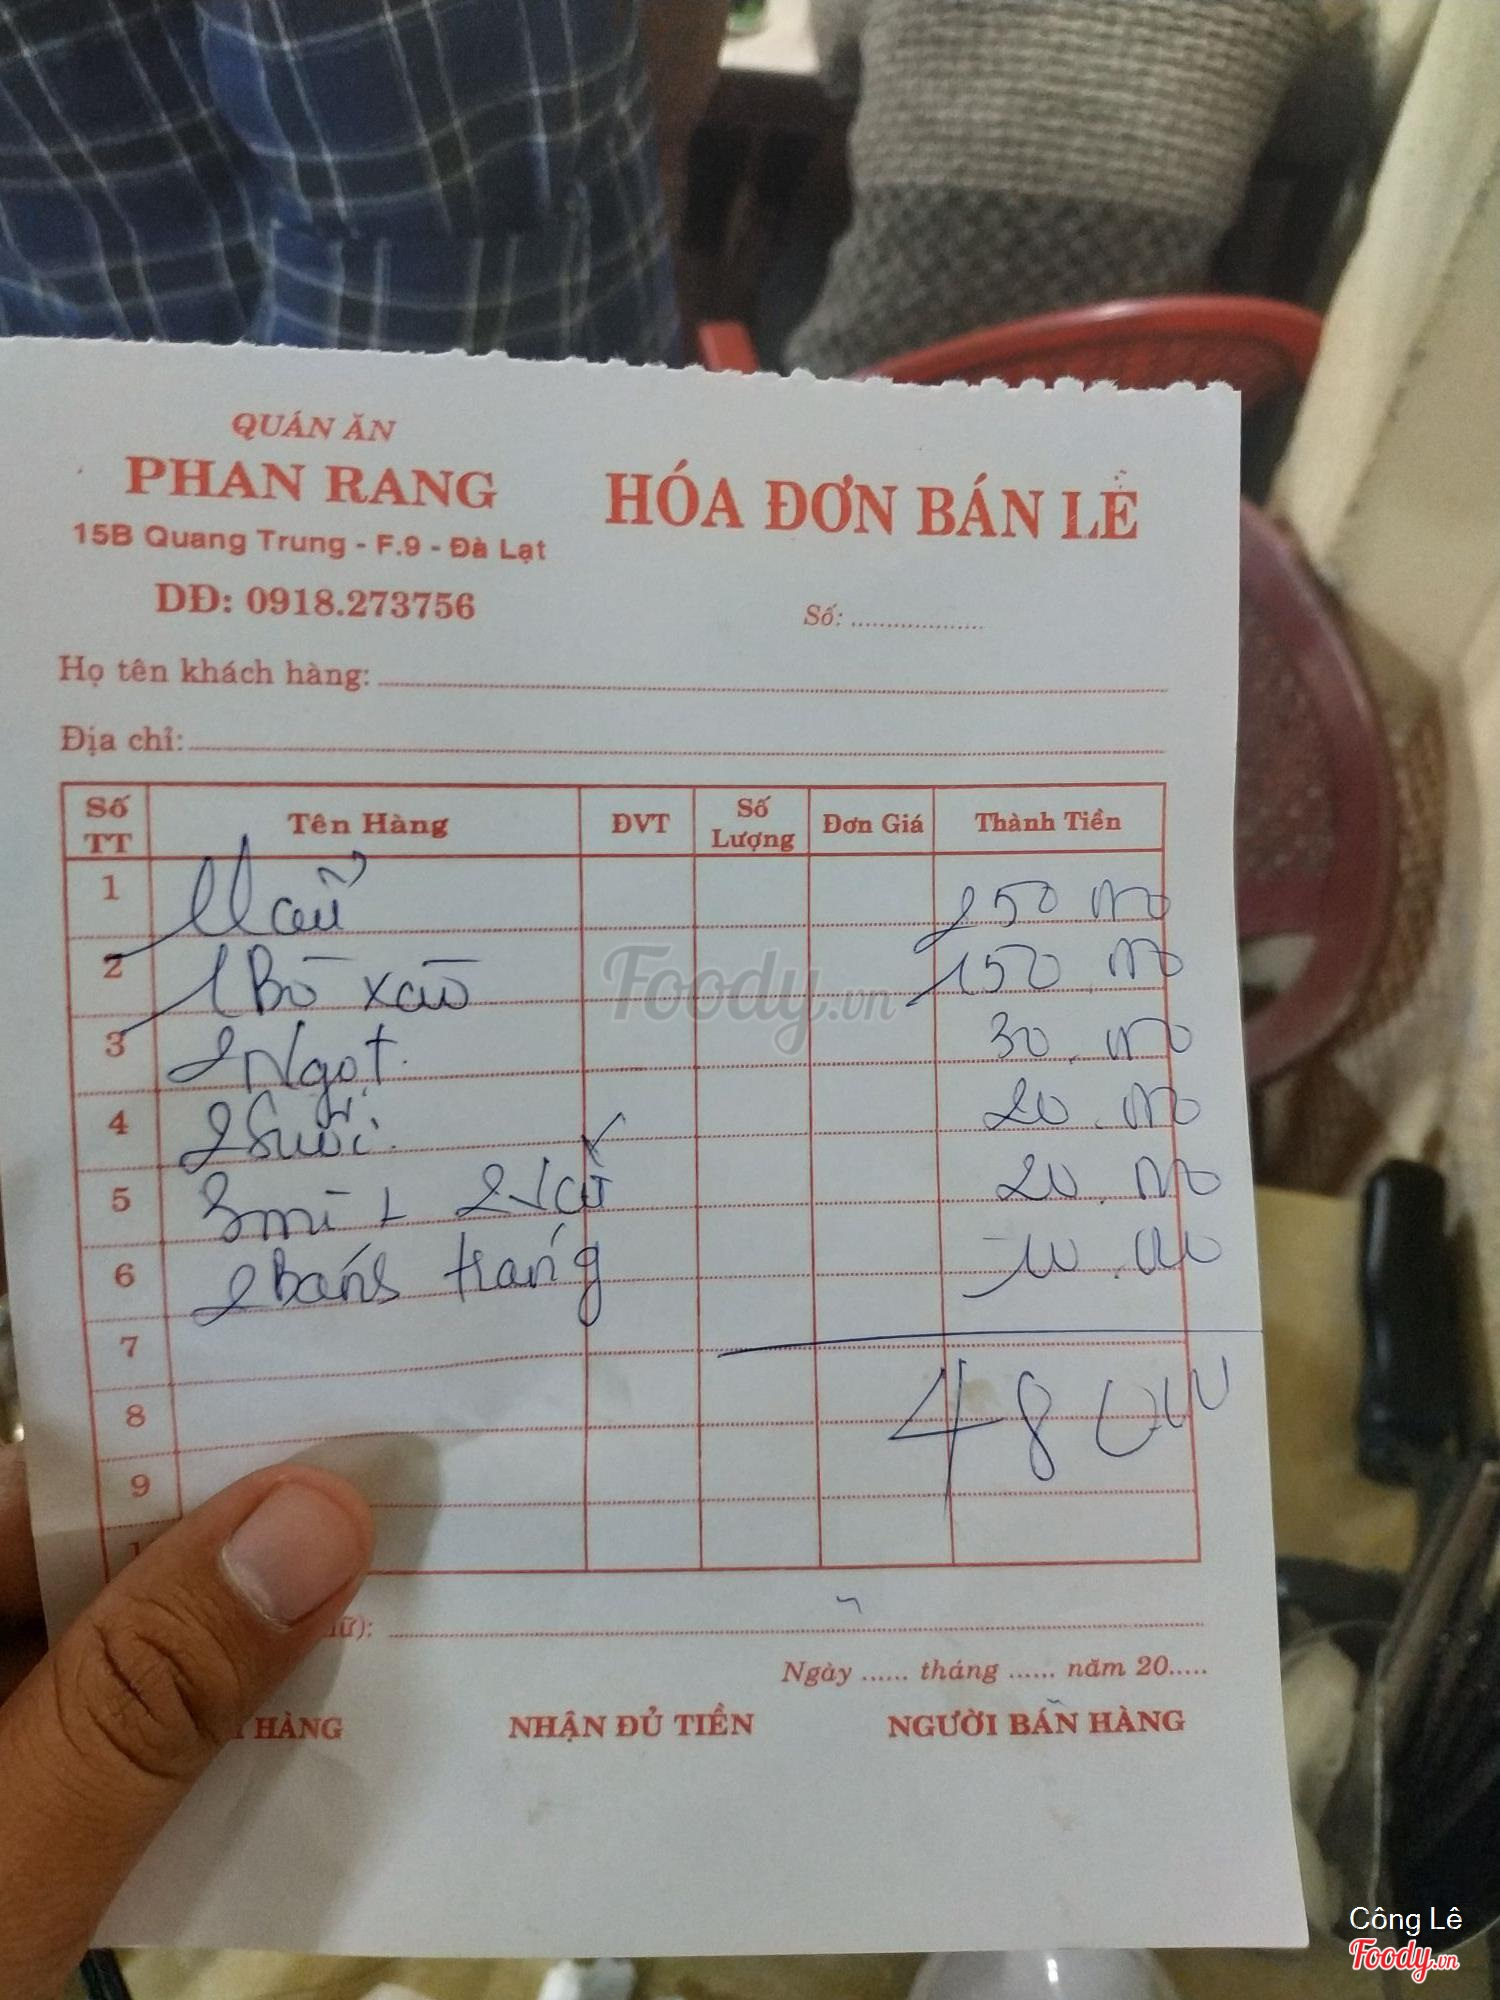 QUÁN ĂN
PHAN RANG
15B Quang Trung - F.9 - Đà Lạt
DĐ: 0918.273756
HÓA ĐƠN BÁN LẺ
Số: ...................
Họ tên khách hàng:
Địa chỉ:
Số TT Tên Hàng ĐVT Số Lượng Đơn Giá Thành Tiền
1 1 Lẩu 250.000
2 1 Bò xào 150.000
3 2 Ngọt 30.000
4 2 Suối 20.000
5 3 mì + 2 20.000
6 2 Bánh tráng 10.000
7
8 480.000
9
1
ữ):
Ngày ...... tháng ...... năm 20.....
HÀNG NHẬN ĐỦ TIỀN NGƯỜI BÁN HÀNG
Foody.vn
Công Lê
Foody.vn